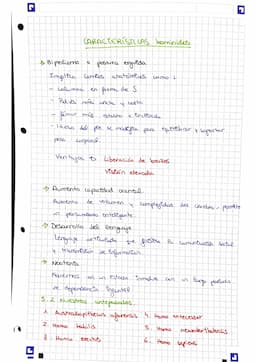 CARACTERÍSTICAS homínidos
→ Bipedismo o postura erguida
Implica cambios anatómicos como:
- columna en forma de S
- Pelvis más ancha y corta
- fémur más
- Hueso del pie se modifica para equilibrar y soportar
peso corporal.
Ventajas → Liberación de brazos
Visión elevada
→ Aumento capacidad craneal
Aumento de volumen y complejidad del cerebro, permite
un pensamiento inteligente.
→ Desarrollo del lenguaje
Lenguaje articulado que facilita la comunicación social
y transmisión de información.
→ Neotenia
Nacemos en un estado inmaduro con un largo período
de dependencia
5.2 Nuestros antepasados
1. Australopithecus afarensis
4. Homo antecessor
2. Homo habilis
5. Homo neanderthalensis
3. Homo erectus
6. Homo sapiens